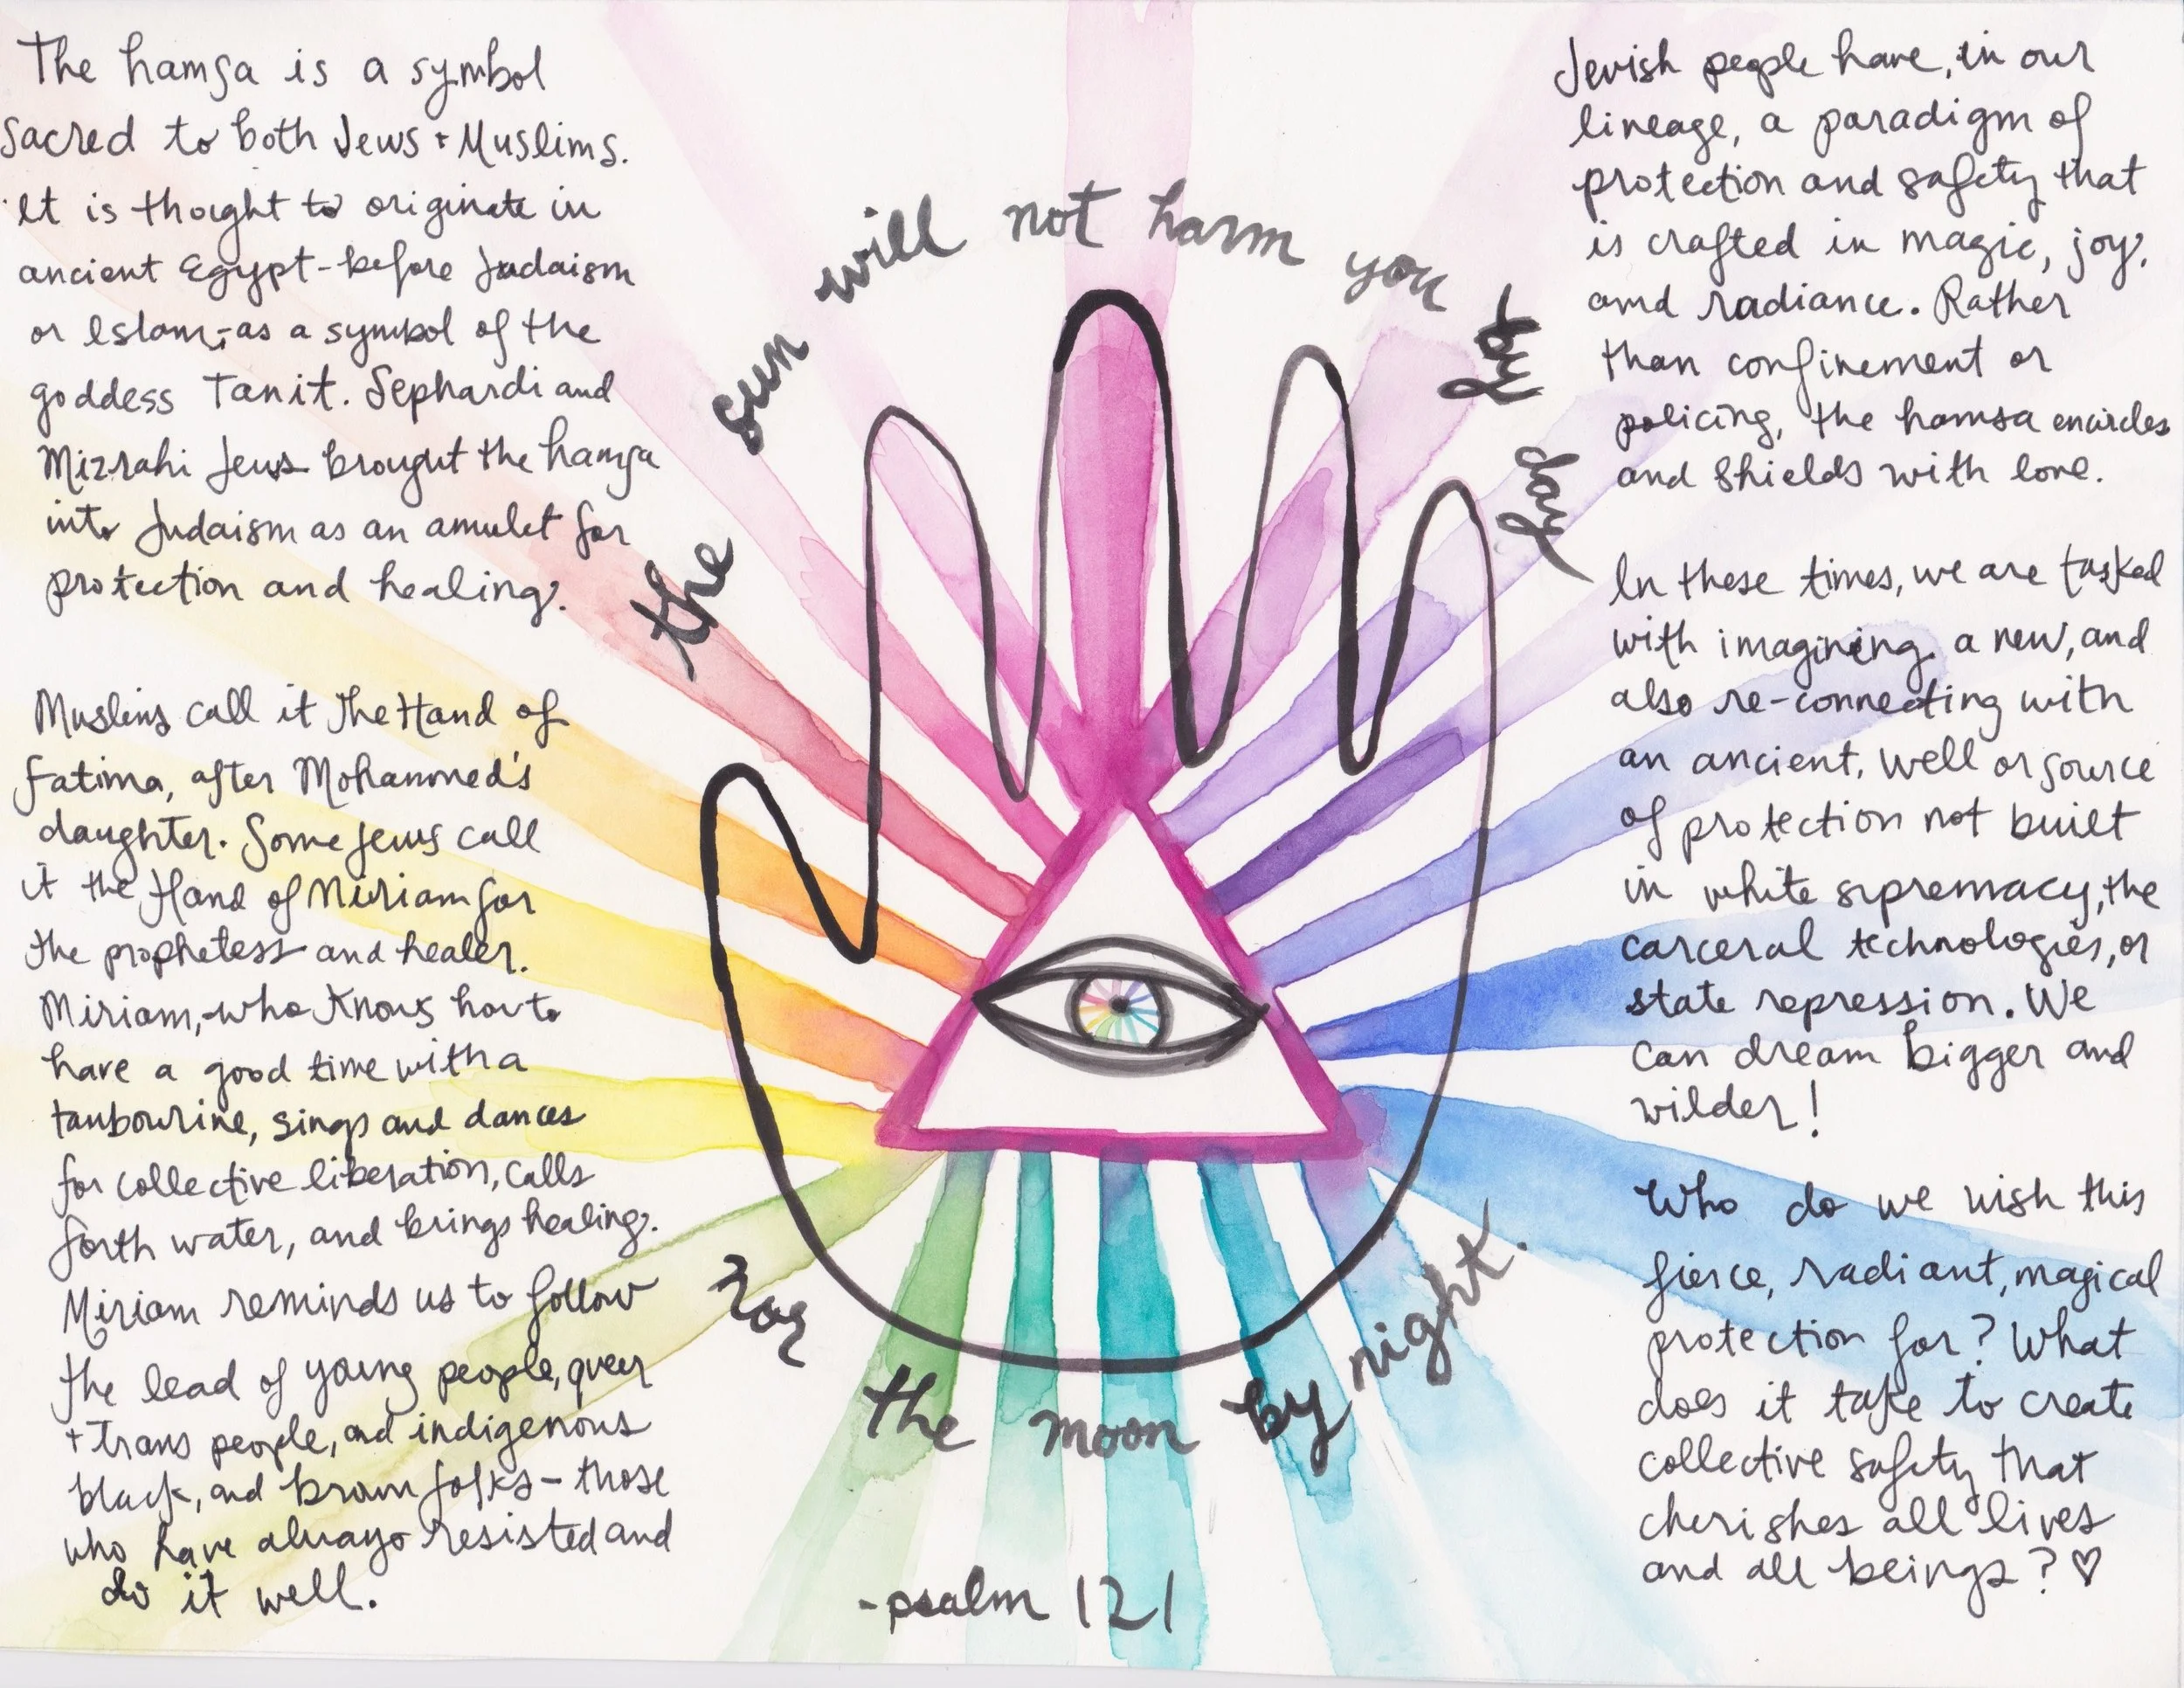 The hamsa is a symbol
sacred to both Jews + Muslims.
It is thought to originate in
ancient Egypt - before Judaism
or Islam, - as a symbol of the
goddess Tanit. Sephardi and
Mizrahi Jews brought the hamsa
into Judaism as an amulet for
protection and healing.
Muslims call it The Hand of
Fatima, after Mohammed's
daughter. Some Jews call
it the Hand of Miriam for
the prophetess and healer.
Miriam, - who knows how to
have a good time with a
tambourine, sings and dances
for collective liberation, calls
forth water, and brings healing.
Miriam reminds us to follow
the lead of young people, queer
+ trans people, and indigenous
black, and brown folks - those
who have always resisted and
do it well.
the sun will not harm you by day
nor the moon by night.
- psalm 121
Jewish people have, in our
lineage, a paradigm of
protection and safety that
is crafted in magic, joy,
and radiance. Rather
than confinement or
policing, the hamsa encircles
and shields with love.
In these times, we are tasked
with imagining a new, and
also re-connecting with
an ancient, well or source
of protection not built
in white supremacy, the
carceral technologies, or
state repression. We
can dream bigger and
wilder!
Who do we wish this
fierce, radiant, magical
protection for? What
does it take to create
collective safety that
cherishes all lives
and all beings? ♡